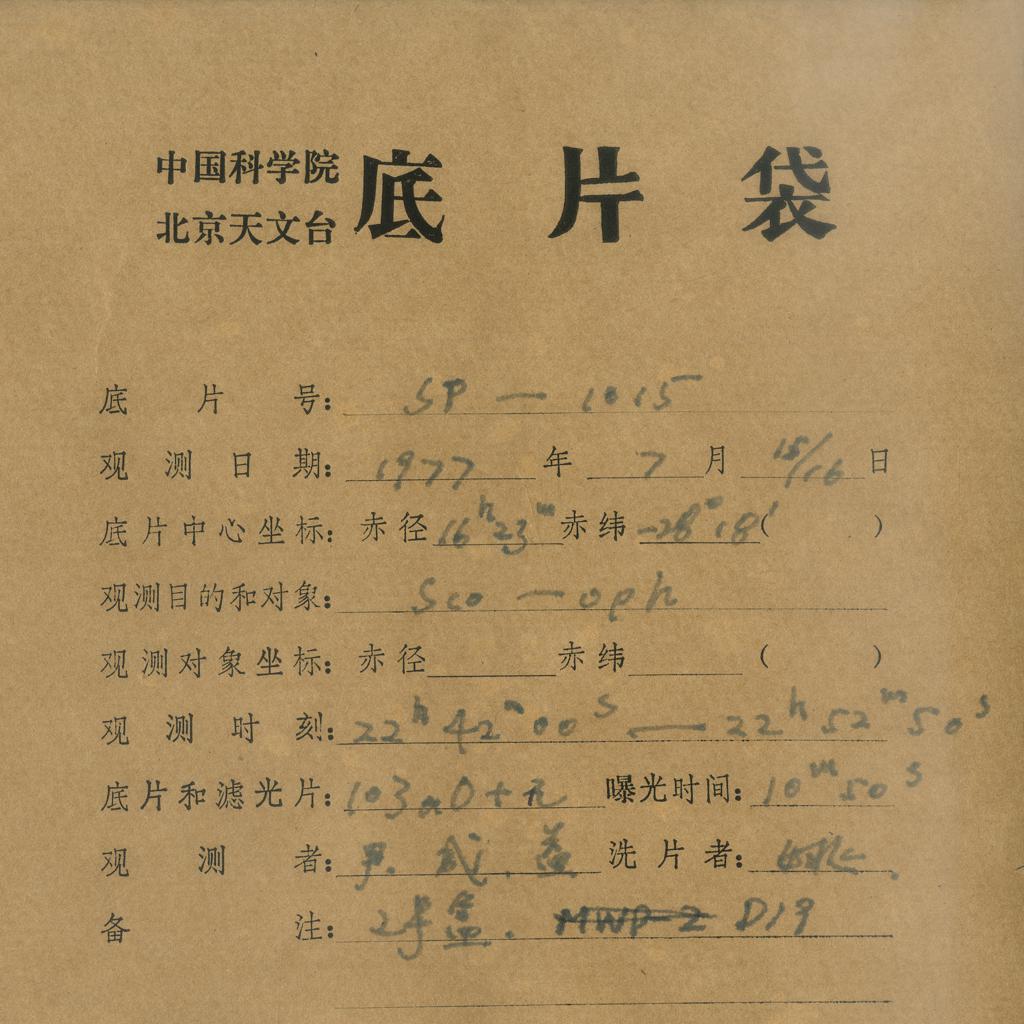 中国科学院
北京天文台
底片袋
底片号：SP — 1015
观测日期：1977年7月15/16日
底片中心坐标：赤径16h23m赤纬-28°18′（ ）
观测目的和对象：Sco — oph
观测对象坐标：赤径 赤纬 （ ）
观测时刻：22h42m00s — 22h52m50s
底片和滤光片：103aO+无 曝光时间：10m50s
观测者：尹. 武. 益 洗片者：
备注：2号盒. MWP-2 D19